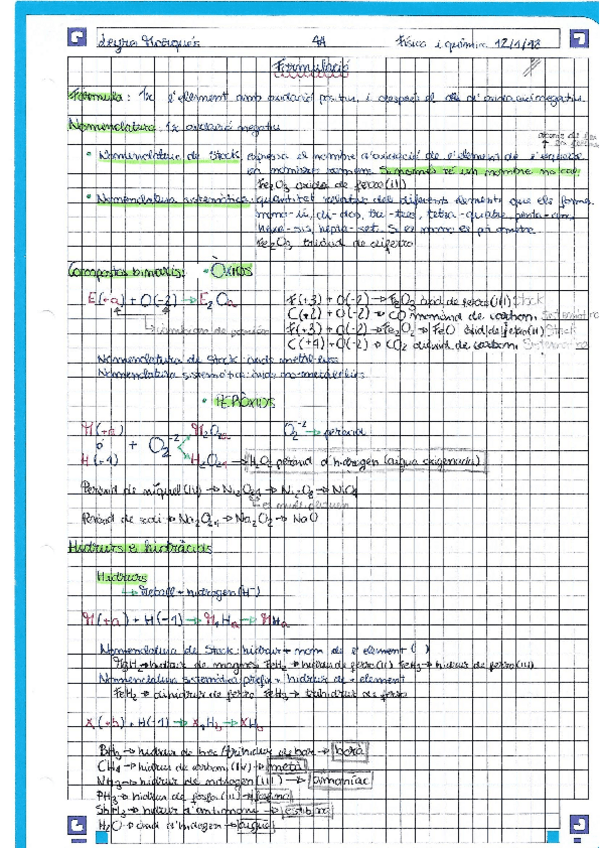 Leyra Marqués 4A Física i química 12/1/18
Formulació
Fórmula: 1r l'element amb oxidació positiu, i després el de oxidació negatiu.
Nomenclatura: 1r oxidació negatiu
• Nomenclatura de Stock: expressa el nombre d'oxidació de l'element
en nombres romans. Si només té un nombre no cal.
Fe₂O₃ òxid de ferro(III)
• Nomenclatura sistemàtica: quantitat dels diferents elements que els forma.
mono-u, di-dos, tri-tres, tetra-quatre, penta-cinc,
hexa-sis, hepta-set. Si es mono, es pot ometre.
Fe₂O₃ triòxid de diferro
Compostos binaris: • Òxids
E(+a) + O(-2) → E₂Oₐ
F(+3) + O(-2) → Fe₂O₃ òxid de ferro(III) Stock
C(+2) + O(-2) → CO monòxid de carboni. Sistemàtica
F(+3) + O(-2) → Fe₂O₂ → FeO òxid de ferro(II) Stock
C(+4) + O(-2) → CO₂ diòxid de carboni. Sistemàtica
Nomenclatura de Stock: òxids metàl·lics
Nomenclatura sistemàtica: òxids no-metàl·lics
• PERÒXIDS
M(+a) M₂O₂ₐ O₂⁻² → peròxid
ó + O₂⁻²
H(+1) H₂O₂ → H₂O₂ peròxid d'hidrogen (aigua oxigenada)
Peròxid de níquel(IV) → Ni₂O₂₄ → Ni₂O₈ → NiO₄
Peròxid de sodi → Na₂O₂ₓ₁ → Na₂O₂ → NaO
Hidrurs i hidràcids
Hidrurs
→ Metall + hidrogen(H⁻)
M(+a) + H(-1) → M₁Hₐ → MHₐ
Nomenclatura de Stock: hidrur + nom de l'element ( )
MgH₂ → hidrur de magnesi FeH₂ → hidrur de ferro(II) FeH₃ → hidrur de ferro(III)
Nomenclatura sistemàtica: prefix + hidrur de + element
FeH₂ → dihidrur de ferro FeH₃ → trihidrur de ferro
X(+b) + H(-1) → X₁H₃ → XH₃
BH₃ → hidrur de bor/trihidrur de bor → borà
CH₄ → hidrur de carboni (IV) → metà
NH₃ → hidrur de nitrogen (III) → amoníac
PH₃ → hidrur de fosfor → fosfina
SbH₃ → hidrur d'antimoni → estibina
H₂O → òxid d'hidrogen → aigua